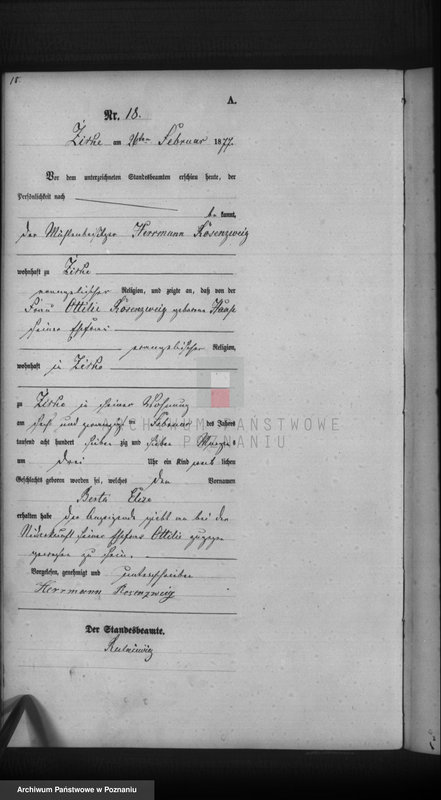 18.
A.
Nr. 18.
Zirke am 26ten Februar 1877.
Vor dem unterzeichneten Standesbeamten erschien heute, der
Persönlichkeit nach
be kannt,
der Mühlenbesitzer Herrmann Rosenzweig
wohnhaft zu Zirke
evangelischer Religion, und zeigte an, daß von der
Frau Ottilie Rosenzweig geborene Haase
seiner Ehefrau
evangelischer Religion,
wohnhaft in Zirke
zu Zirke in seiner Wohnung
am sechs und zwanzigsten Februar des Jahres
tausend acht hundert sieben zig und sieben Morgens
um drei Uhr ein Kind weib lichen
Geschlechts geboren worden sei, welches den Vornamen
Berta Elise
erhalten habe der Anzeigende giebt an bei der
Niederkunft seiner Ehefrau Ottilie zugegen
gewesen zu sein.
Vorgelesen, genehmigt und unterschrieben
Herrmann Rosenzweig
Der Standesbeamte.
ARCHIWUM PAŃSTWOWE
W POZNANIU
Archiwum Państwowe w Poznaniu